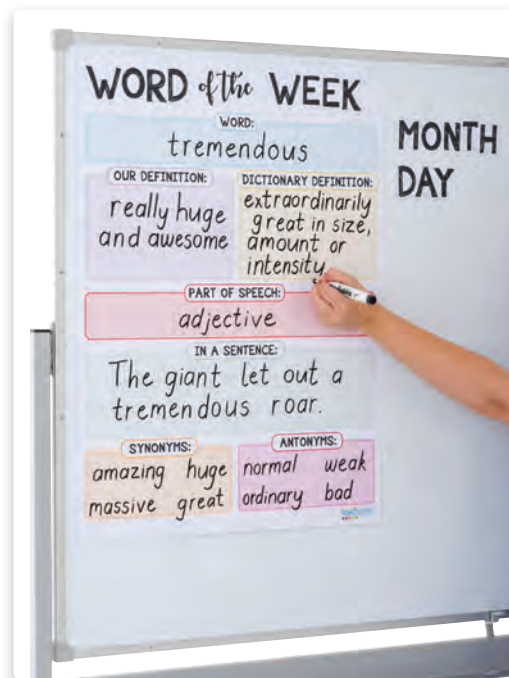 WORD of the WEEK
WORD:
tremendous
OUR DEFINITION:
really huge
and awesome
DICTIONARY DEFINITION:
extraordinarily
great in size,
amount or
intensity
PART OF SPEECH:
adjective
IN A SENTENCE:
The giant let out a
tremendous roar.
SYNONYMS:
amazing huge
massive great
ANTONYMS:
normal weak
ordinary bad
MONTH
DAY